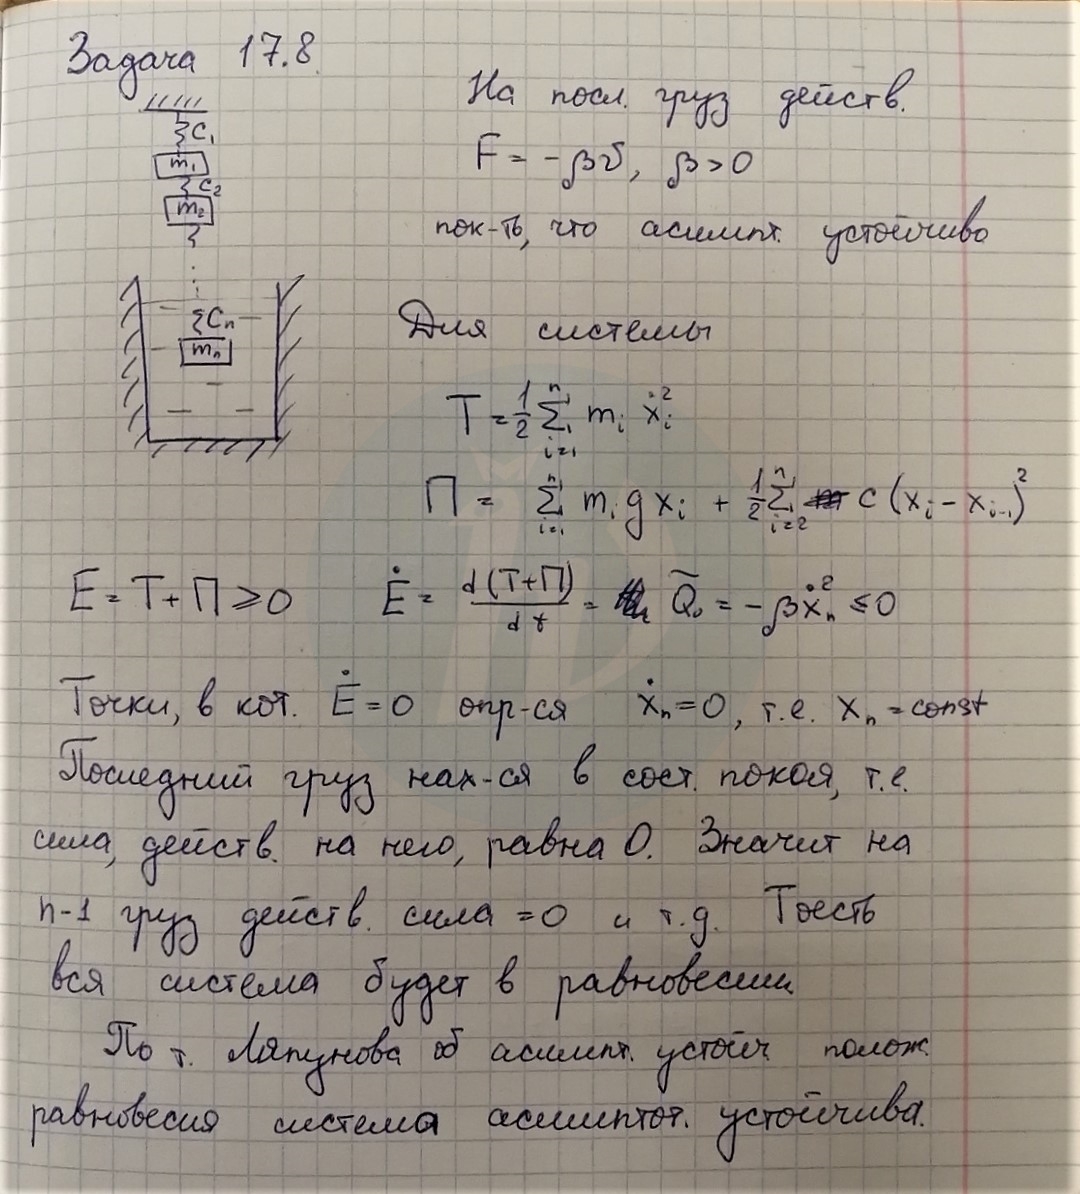 Задача 17.8
C₁
m₁
C₂
m₂
Cₙ
mₙ
На посл. груз действ.
F = -βv, β > 0
пок-ть, что асимпт. устойчиво
Для системы
T = 1/2 Σᵢ₌₁ⁿ mᵢ ẋᵢ²
П = Σᵢ₌₁ⁿ mᵢ g xᵢ + 1/2 Σᵢ₌₂ⁿ c (xᵢ - xᵢ₋₁)²
E = T + П ≥ 0 Ė = d(T+П)/dt = Q̃₀ = -βẋₙ² ≤ 0
Точки, в кот. Ė = 0 опр-ся ẋₙ = 0, т.е. xₙ = const
Последний груз нах-ся в сост. покоя, т.е.
сила, действ. на него, равна 0. Значит на
n-1 груз действ. сила = 0 и т.д. Тоесть
вся система будет в равновесии.
По т. Ляпунова об асимпт. устойч полож.
равновесия система асимптот. устойчива.